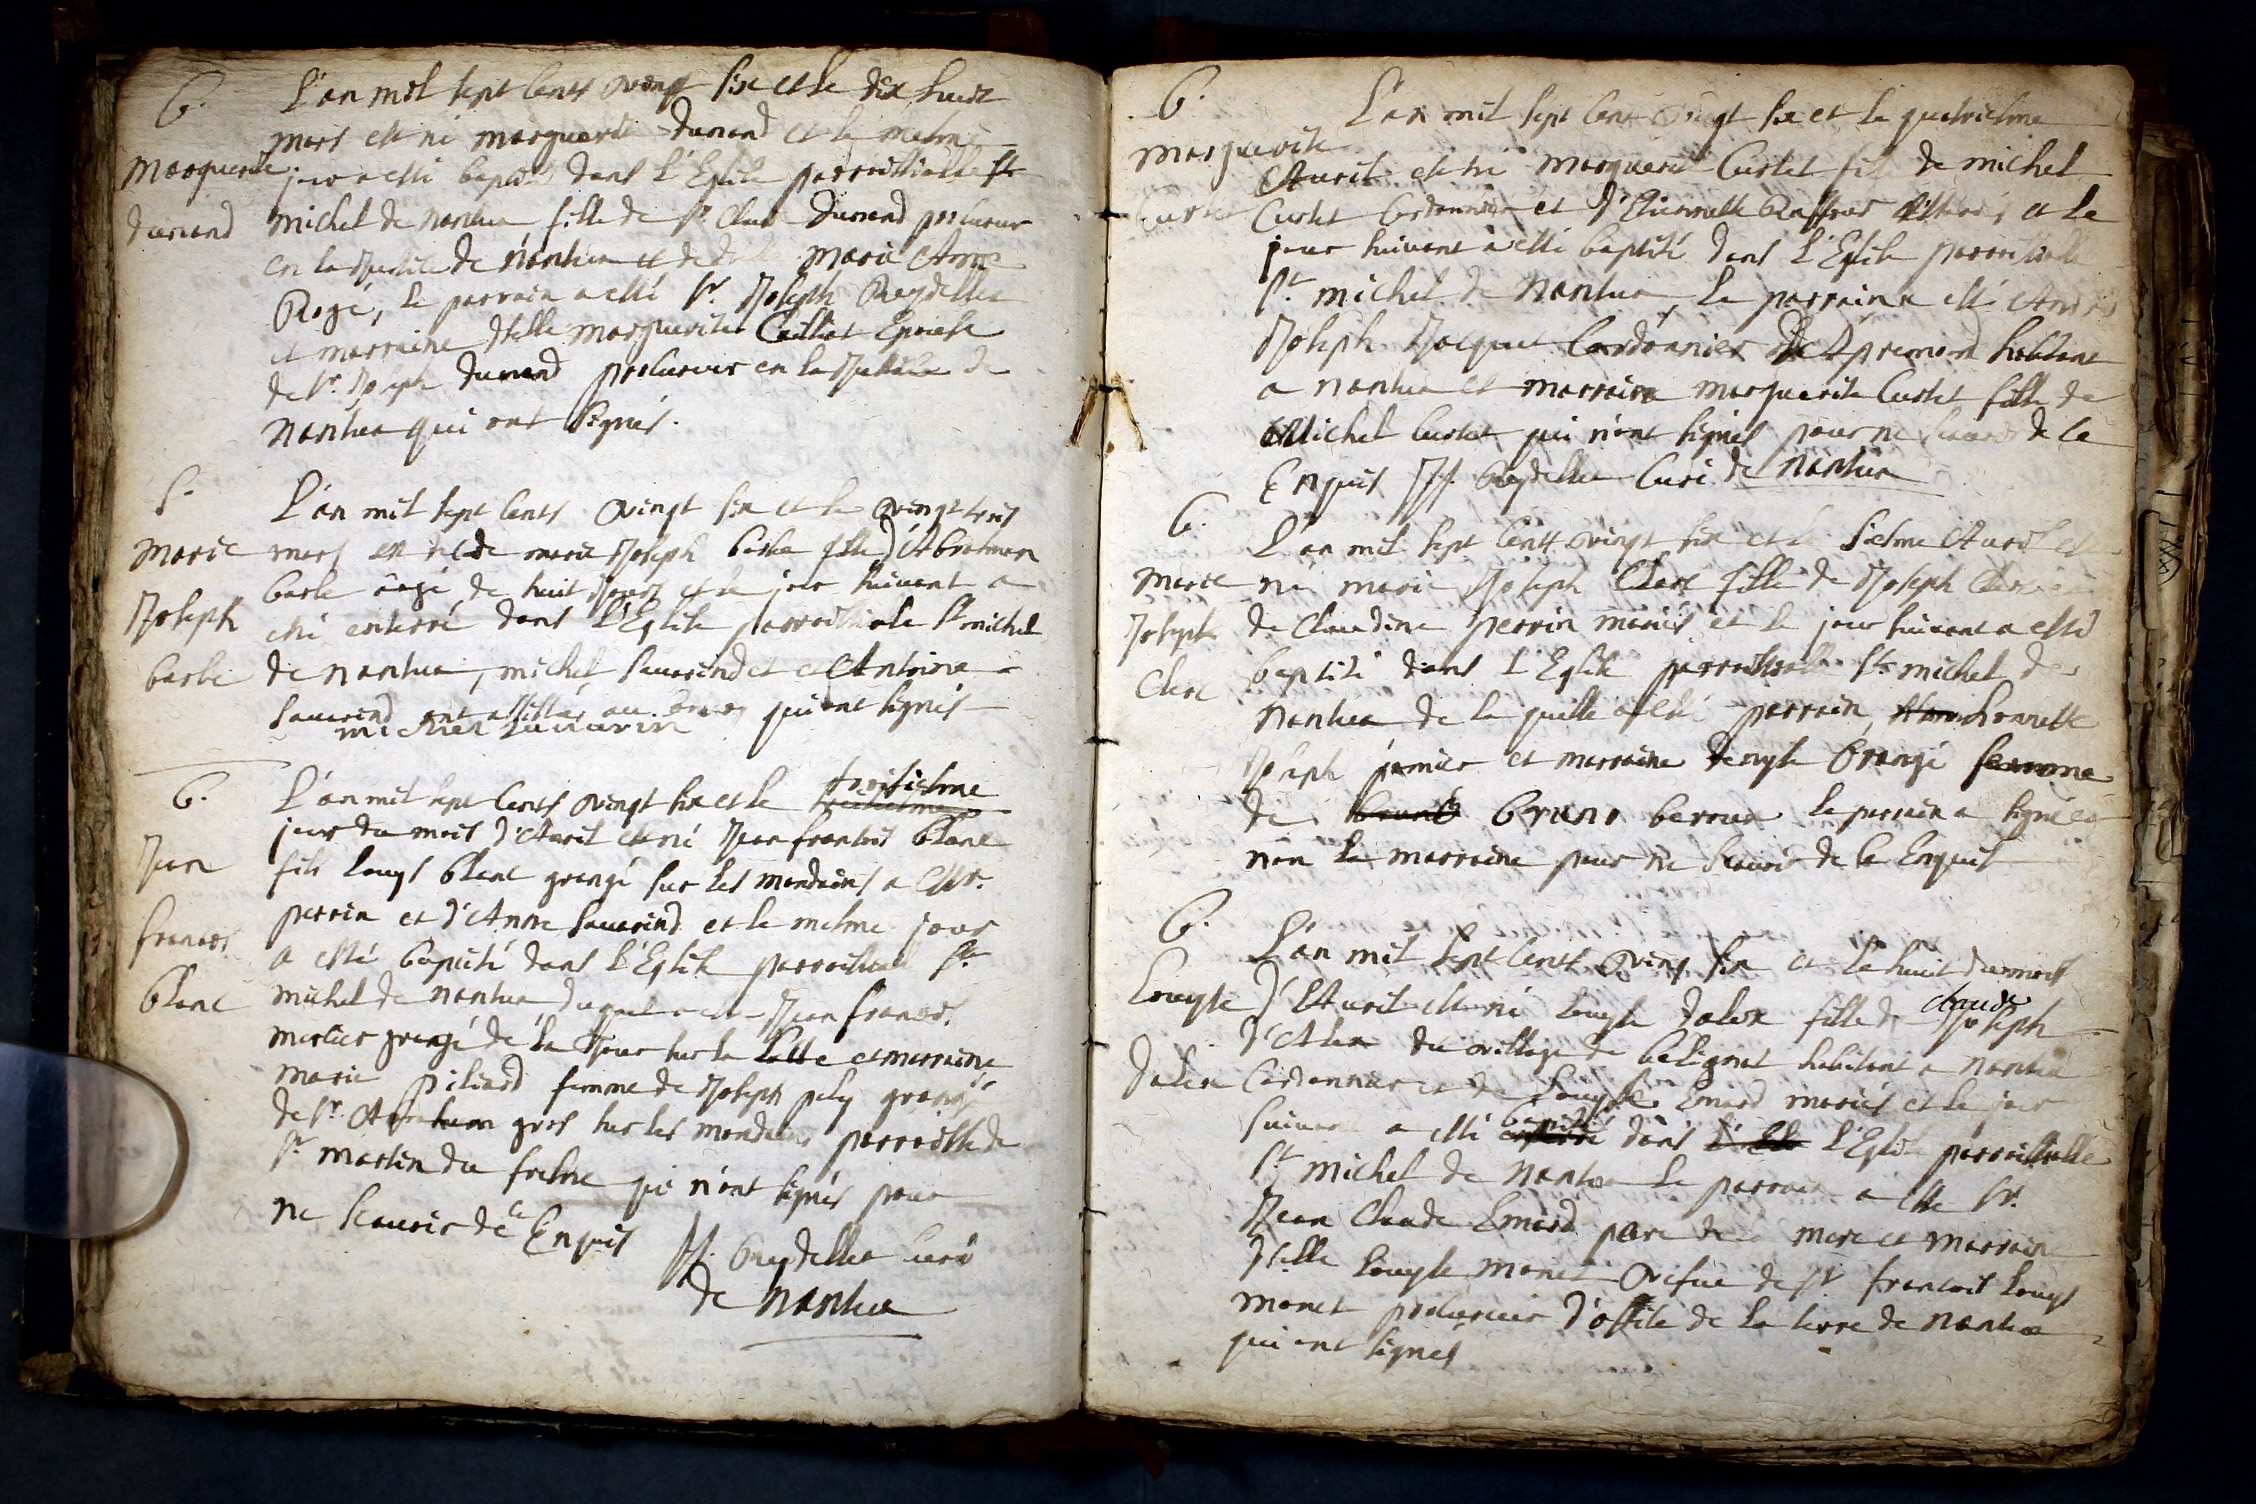 B.
Marguerite
dunand
L'an mil sept cents vingt six et le dix huict
mars est né marguerite dunand et le mesme
jour a esté baptisé dans l'Eglise parroissialle St
michel de nantua, fille de Sr. Claude Dunand procureur
en la Justice de nantua et de dlle marie Anne
Rogé, le parrain a esté Sr. Joseph Reydellet
et marraine dlle marguerite Cailliat Epouse
de Sr. Joseph dunand procureur en la Justice de
nantua qui ont signés.
S.
marie
Joseph
barbe
L'an mil sept cents vingt six et le vingt trois
mars est decede marie Joseph barbe fille d'Abraham
barbe aagé de huit jours et le jour suivant a
esté enterré dans l'Eglise parroissiale St michel
de nantua, michel sauarind et et Antoine
sauarind ont assistes au qui ont signés
michel sauarin
B.
Jean
francois
blanc
L'an mil sept cents vingt six et le troisiesme
jour du mois d'Auril est né Jean francois blanc
fils Louys blanc grangé sur les mondains a Mr.
perrin et d'Anne sauarind et le mesme jour
a esté baptisé dans l'Eglise parroissiale St
michel de nantua, duquel a esté Jean francois
mercier grangé de la Tour sur la Coste et marraine
marie piliard femme de Joseph pely grangé
de Sr. Abraham gros sur les mondains parroisse de
St. martin du fresne qui n'ont signés pour
ne scauoir de ce Enquis JJ. Reydellet curé
de nantua
B.
marguerite
Curtet
L'an mil sept cent vingt six et le quatriesme
Auril est né marguerite Curtet fille de michel
Curtet Cordonnier et d'Etiennette mariés et le
jour suivant a esté baptisé dans l'Eglise parroissialle
St. michel de Nantua, le parrain a esté André
Joseph Jacquet Cordonnier de premond habitant
a nantua et marraine marguerite Curtet fille de
Michel Curtet qui n'ont signés pour ne scauoir de ce
Enquis JJ. Reydellet Curé de nantua
B.
marie
Joseph
Clerc
L'an mil sept cents vingt six et le sixiesme Auril est
né marie Joseph Clerc fille de Joseph Clerc et
de Claudine perrin mariés et le jour suivant a esté
baptisé dans l'Eglise parroissialle St. michel de
nantua de la quelle a esté parrain, honnette
Joseph jomier et marraine denyse Grangé femme
de bruno berroux le parrain a signé et
non la marraine pour ne scauoir de ce Enquis
B.
Louyse
dalex
L'an mil sept cents vingt six et le huict du mois
d'Auril est né louyse dalex fille de claude Joseph
d'Alex du village de beligniat habitant a nantua
Cordonnier et de Louyse Emard mariés et le jour
suivant a esté baptisé dans l'Eglise parroissialle
St michel de nantua le parrain a esté Sr.
Jean Claude Emard pere de mere et marraine
dlle Louyse monet vefue de Sr. francois Louys
monet procureur d'office de la terre de nantua
qui ont signés